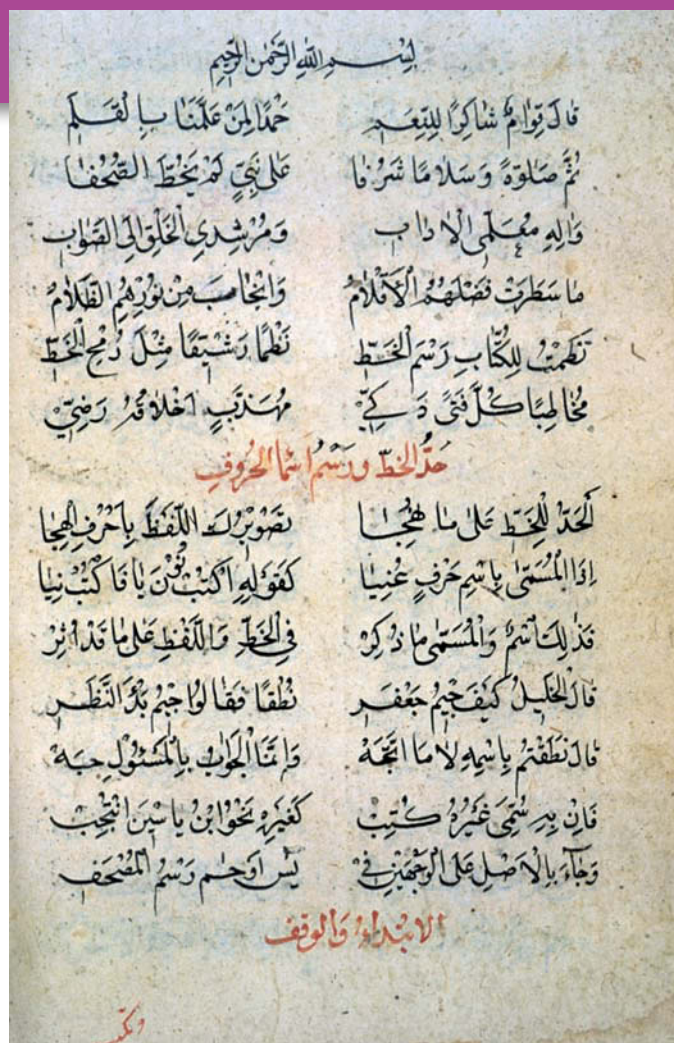 بِسْمِ اللهِ الرَّحْمٰنِ الرَّحِيْمِ
قَالَ قِوَامٌ شَاكِرًا لِلنِّعَمِ حَمْدًا لِمَنْ عَلَّمَنَا بِالْقَلَمِ
ثُمَّ صَلٰوةً وَسَلَامًا شَرُفَا عَلٰى نَبِيٍّ لَمْ يَخُطَّ الصُّحُفَا
وَاٰلِهِ مُعَلِّمِى الْاٰدَابِ وَمُرْشِدِي الْخَلْقِ اِلَى الصَّوَابِ
مَا سَطَرَتْ فَضْلَهُمُ الْاَقْلَامُ وَانْجَابَ مِنْ نُوْرِهِمُ الظَّلَامُ
نَظَمْتُ لِلْكُتَّابِ رَسْمَ الْخَطِّ نَظْمًا رَشِيْقًا مِثْلَ رُمْحِ الْخَطِّ
مُخَاطِبًا كُلَّ فَتًى ذَكِيٍّ مُهَذَّبٍ اَخْلَاقُهُ رَضِيِّ
حَدُّ الخطّ وَرَسْمُ اَسْمَا الحُرُوفِ
اَلْحَدُّ لِلْخَطِّ عَلٰى مَا هُجِّا تَصْوِيْرُكَ اللَّفْظَ بِاَحْرُفِ الْهِجَا
اِذَا الْمُسَمّٰى بِاسْمِ حَرْفٍ عُنِيَا كَقَوْلِهِ اكْتُبْ نُوْنَ يَا فَاكْتُبْ نِيَا
فَذٰلِكَ اسْمٌ وَالْمُسَمّٰى مَا ذُكِرْ فِي الْخَطِّ وَاللَّفْظِ عَلٰى مَا قَدْ اُثِرْ
قَالَ الْخَلِيْلُ كَيْفَ جِيْمُ جَعْفَرِ نُطْقًا فَقَالُوا جِيْمُ بَدْءَ النَّظَرِ
قَالَ نَطَقْتُمْ بِاسْمِهِ لَا مَا اتَّجَهْ وَاِنَّمَا الْجَوَابُ بِالْمَسْئُولِ جَهْ
فَاِنْ بِهِ سُمِّيَ غَيْرُهُ كُتِبْ كَغَيْرِهِ نَحْوَ ابْنُ يَاسِيْنَ انْتُجِبْ
وَجَاءَ بِالْاَصْلِ عَلَى الْوَجْهَيْنِ فِيْ يٰسٓ اَوْ حٰم رَسْمُ الْمُصْحَفِ
الابْتِدَاءُ وَالوَقف